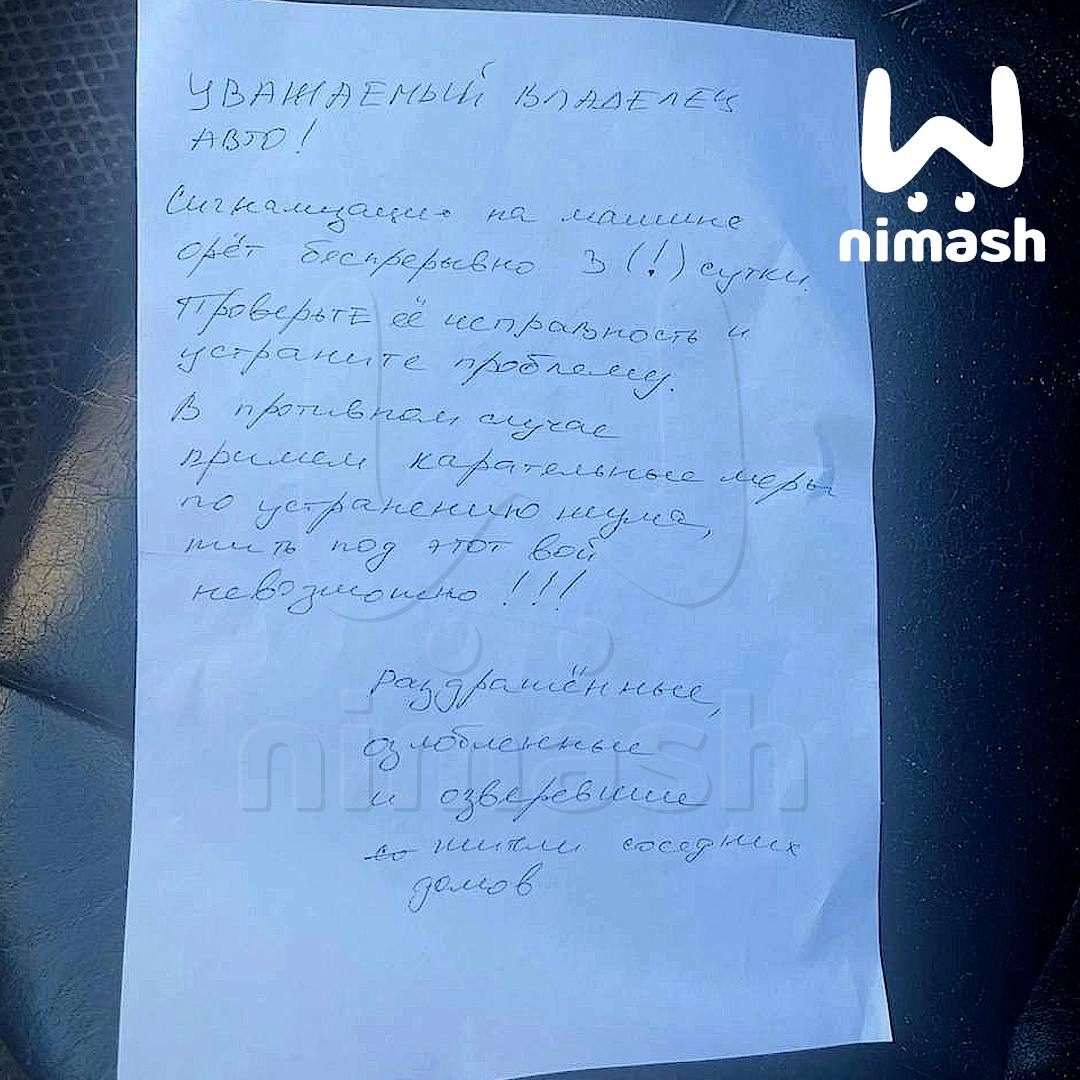 УВАЖАЕМЫЙ ВЛАДЕЛЕЦ
АВТО!
Сигнализация на машине
орёт беспрерывно 3 (!) сутки.
Проверьте её исправность и
устраните проблему.
В противном случае
примем карательные меры
по устранению шума,
жить под этот вой
невозможно !!!
Раздражённые,
озлобленные
и озверевшие
со жители соседних
домов
nimash
nimash